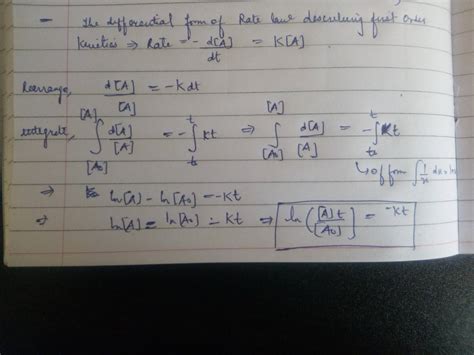 - The differential form of Rate law describing first order
Kinetics ⇒ Rate = - d[A]/dt = K[A]
Rearrange, d[A]/[A] = -K dt
integrate, ∫_[A₀]^[A] d[A]/[A] = -∫_t₀^t Kt ⇒ ∫_[A₀]^[A] d[A]/[A] = -∫_t₀^t Kt
↳ of form ∫ 1/x dx = ln
⇒ ln[A] - ln[A₀] = -Kt
⇒ ln[A] = ln[A₀] - Kt ⇒ ln([A]t/[A₀]] = -Kt